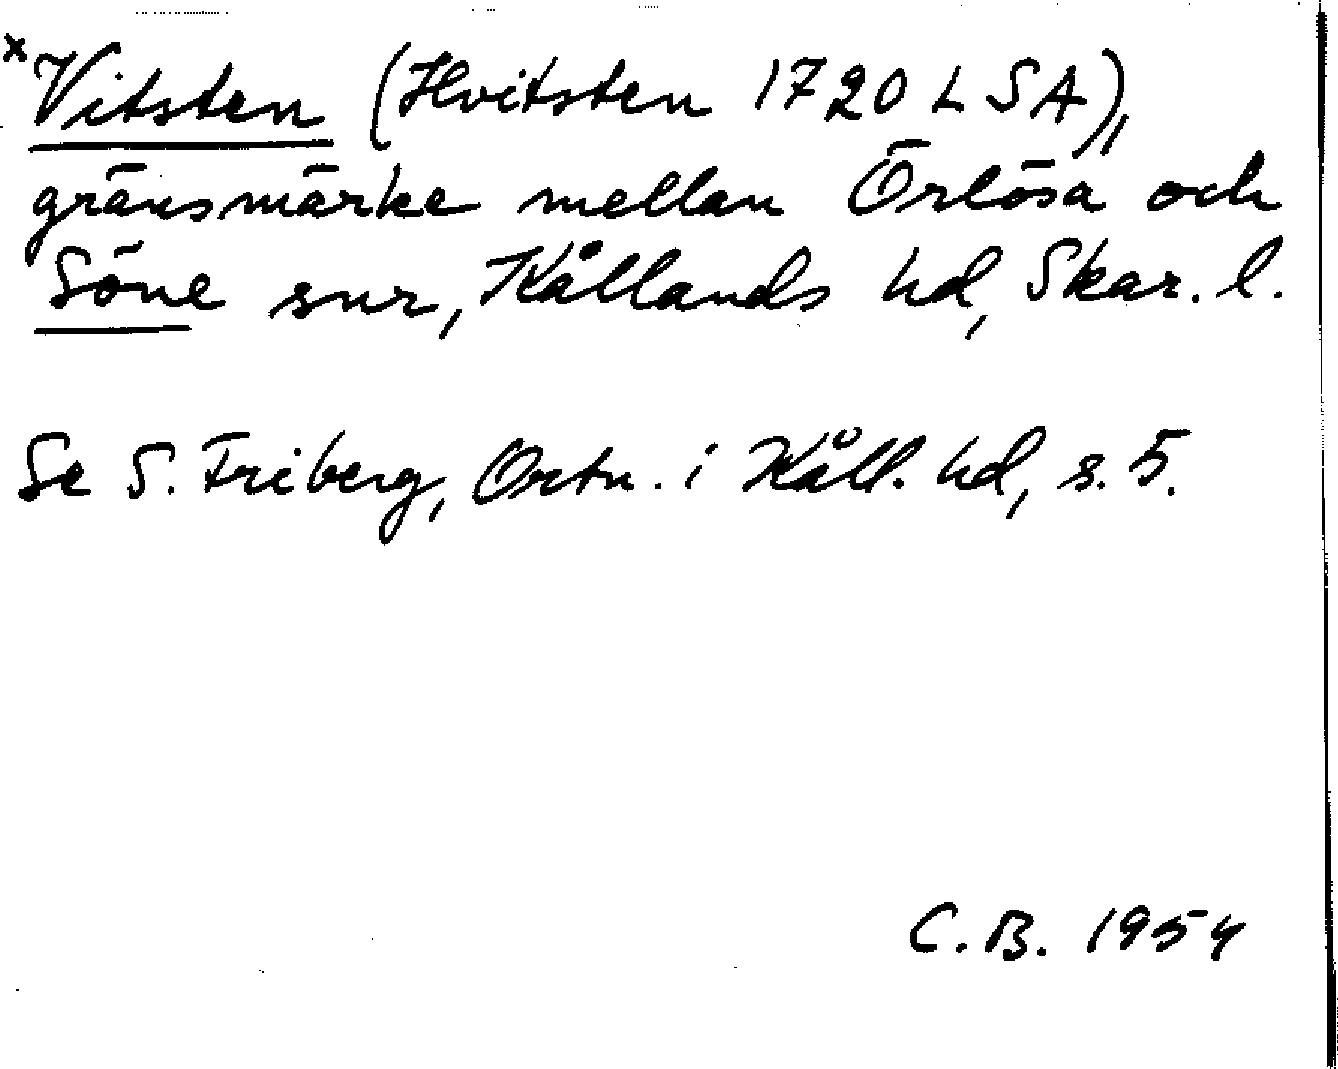 x Vitsten (Hvitsten 1720 LSA),
gränsmärke mellan Örlösa och
Söne snr, Kållands hd, Skar. l.
Se S. Friberg, Ortn. i Kåll. hd, s. 5.
C.B. 1954